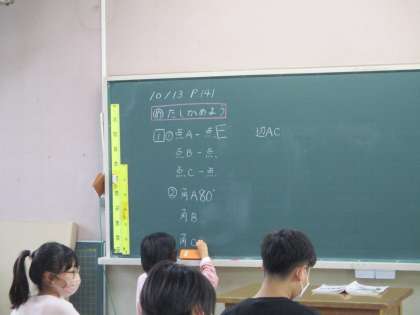 10/13 P.141
㋱たしかめよう
1 ① 点A - 点E 辺AC
点B - 点
点C - 点
② 角A 80°
角B
角C